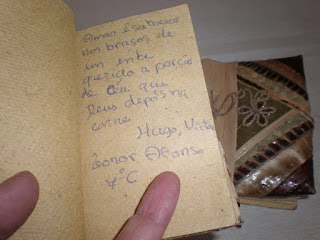 Amor é saborear
nos braços de
um ente
querido a porção
de Céu que
Deus depôs na
carne
Hugo, Victor
Leonor Afonso
7º C